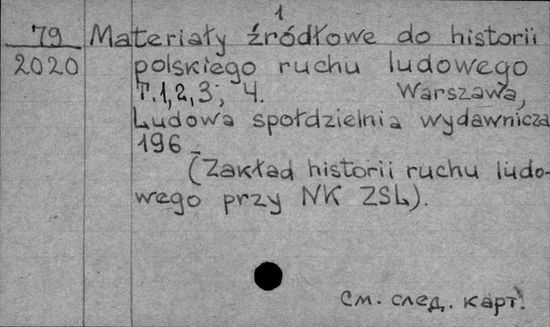 1
79 Materiały źródłowe do historii
2020 polskiego ruchu ludowego
T.1,2,3; 4. Warszawa,
Ludowa społdzielnia wydawnicza
196_
(Zakład historii ruchu ludo-
wego przy NK ZSL).
См. след. карт.